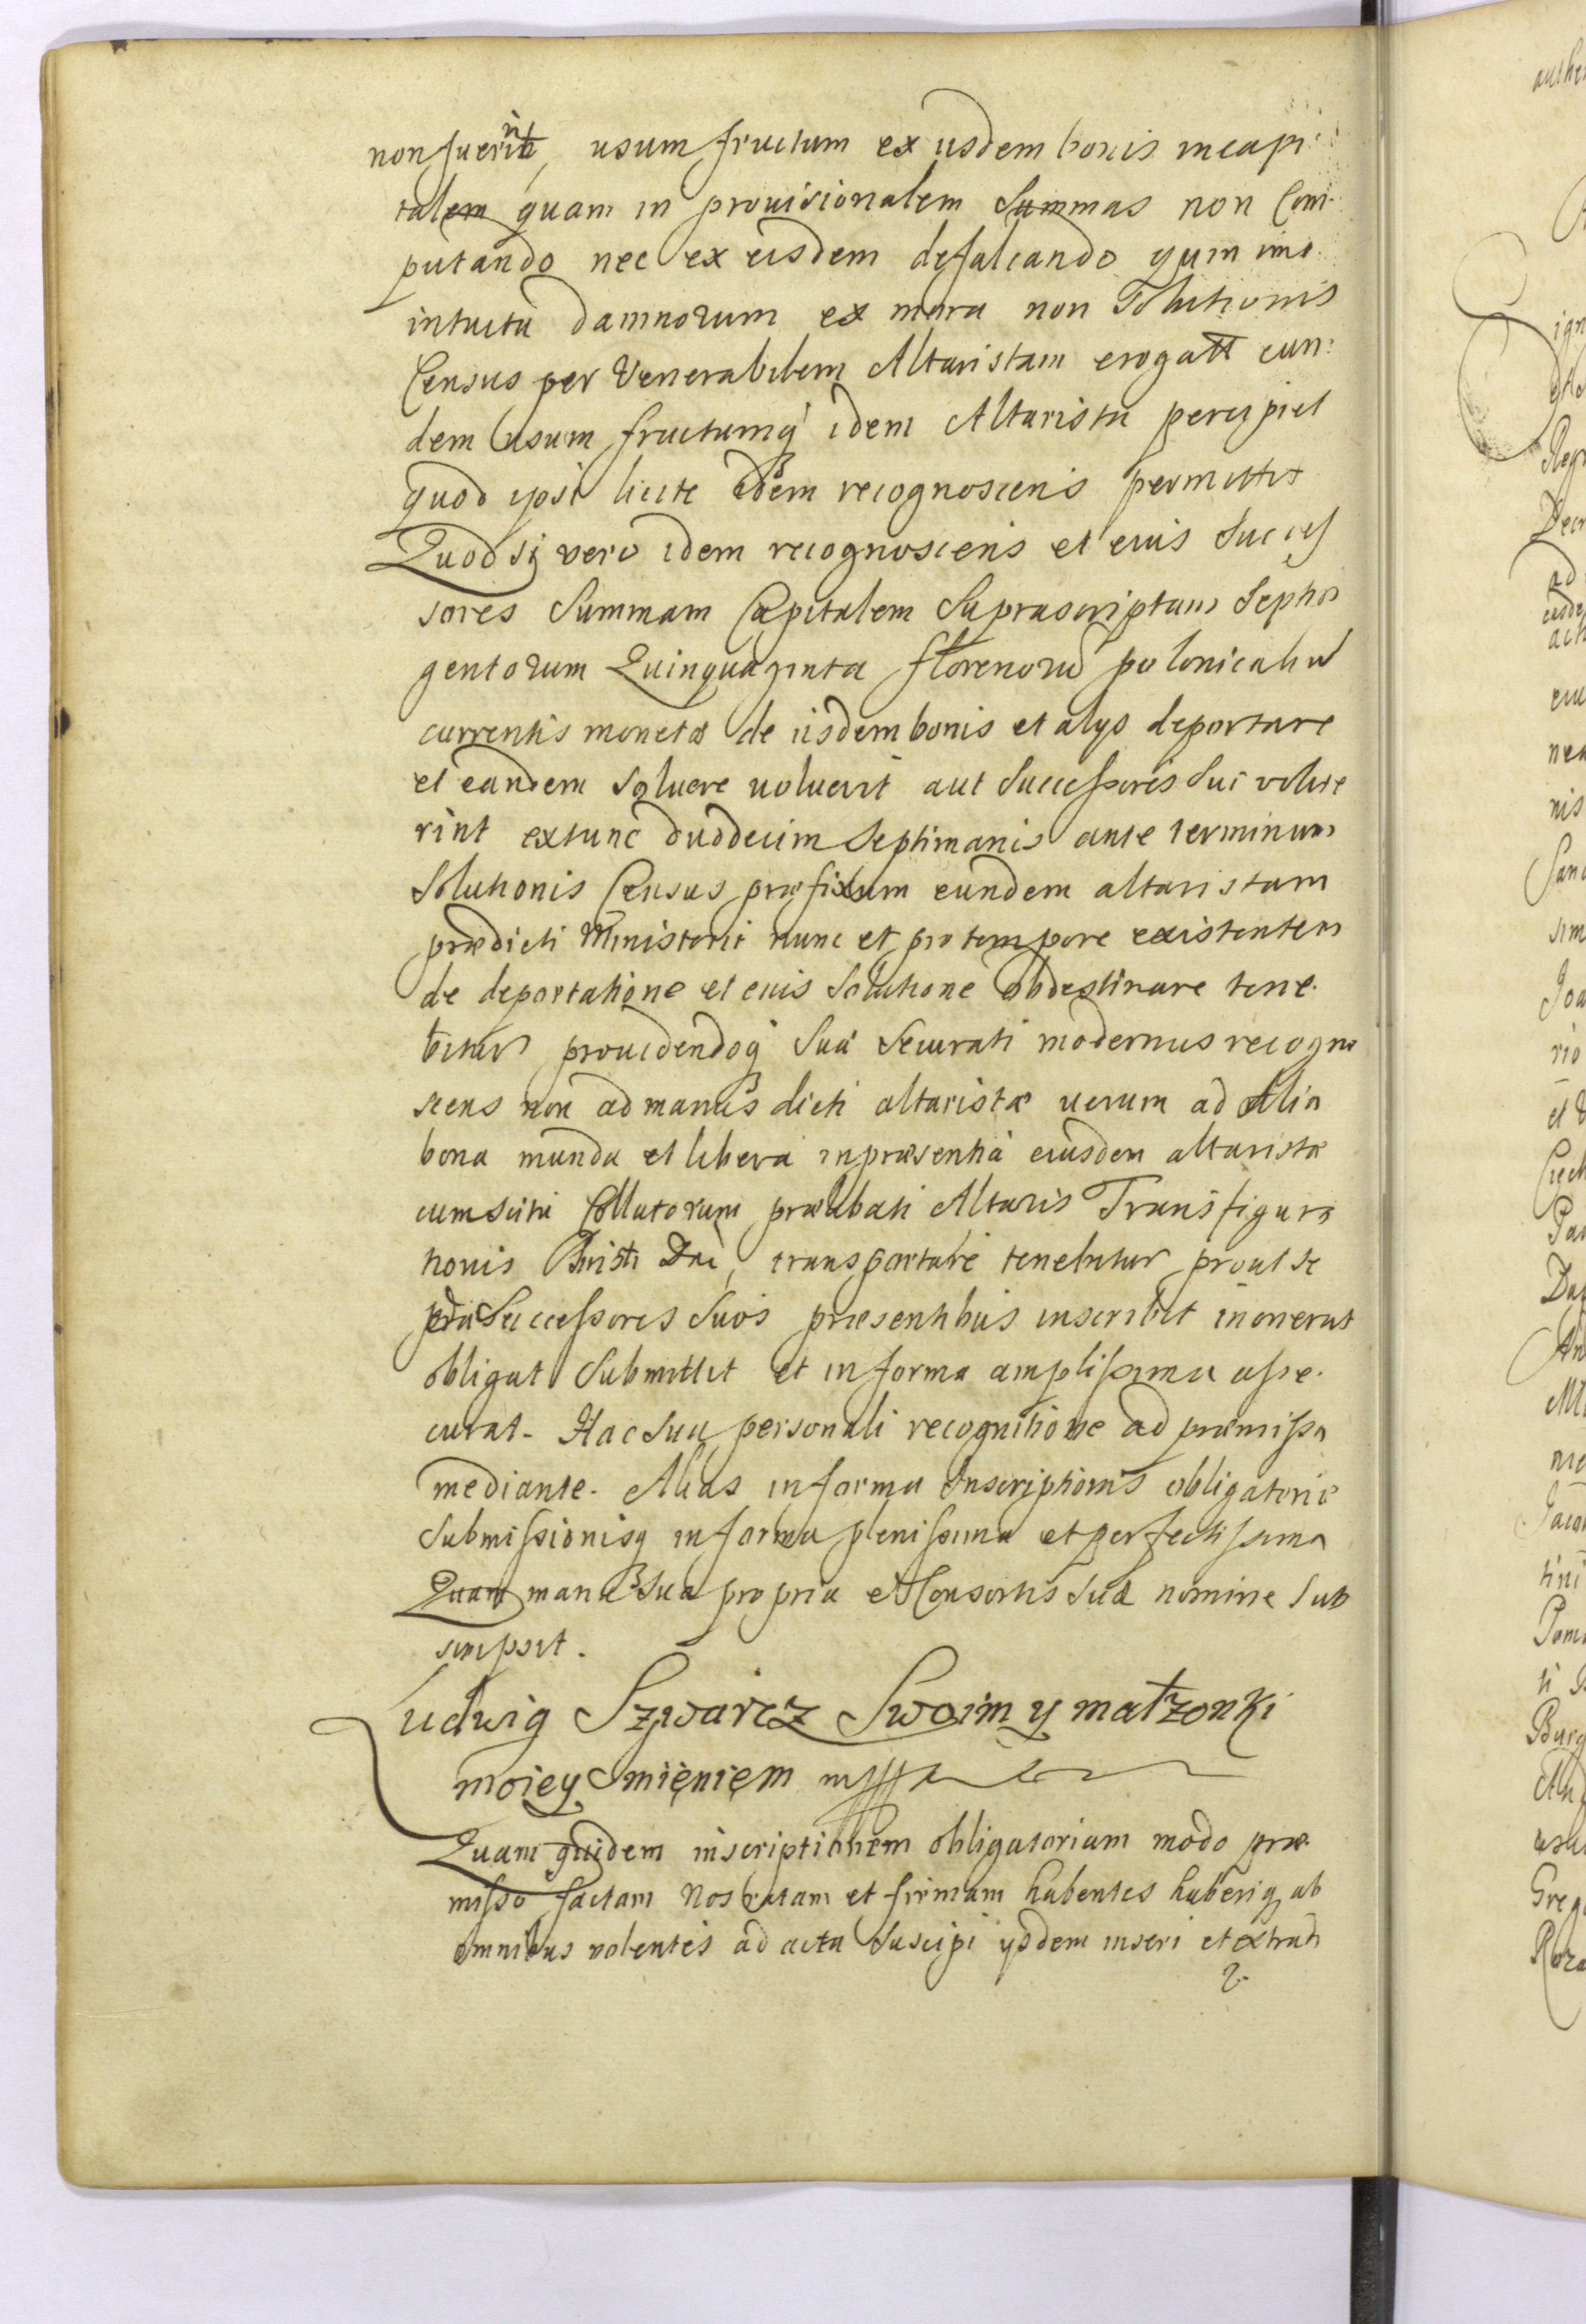 non fuerint, usum fructum ex iisdem bonis in capi
talem quam in prouisionalem Summas non Com
putando nec ex eisdem defalcando quin imo
intuitu damnorum ex mora non Solutionis
Census per Venerabilem Altaristam erogatt eun:
dem usum fructumq idem Altarista percipiet
quod ipsi licite idem recognoscens permittit
Quod si vero idem recognoscens et eius Succes
sores Summam Capitalem Suprascriptam Septin
gentorum Quinquaginta florenoru polonicaliu
currentis monetæ de iisdem bonis et alys deportare
et eandem soluere uoluerit aut Successores Sui volue
rint extunc duodecim Septimanis ante terminum
Solutionis Census præfixum eundem altaristam
prædicti Ministerii nunc et pro tempore existentem
de deportatione et eius Solutione obdestinare tene
bitur prouidendoq Suæ Securati modernus recogno
scens non ad manus dicti altaristæ uerum ad Alia
bona munda et libera in præsentia eiusdem altaristæ
cum scitu Collatorum prælibati Altaris Transfigura
tionis Christi Dni, transportare tenebitur prout se
Successores Suos præsentibus inscribit inonerat
obligat Submittit et in forma amplissima asse
curat. Hac Sua personali recognitione ad præmissa
mediante. Alias in forma Inscriptionis obligatoriæ
Submissionisq in forma plenissima et perfectissima
Quam manu Sua propria et Consortis Suæ nomine Sub
scripsit.
Ludwig Szwarcz Swoim y małzonki
moiey Imięnięm mppa
Quam quidem inscriptionem obligatoriam modo præ
misso factam Nos ratam et firmam habentes haberiq ab
omnibus volentes ad acta Suscipi ysdem inseri et extradi